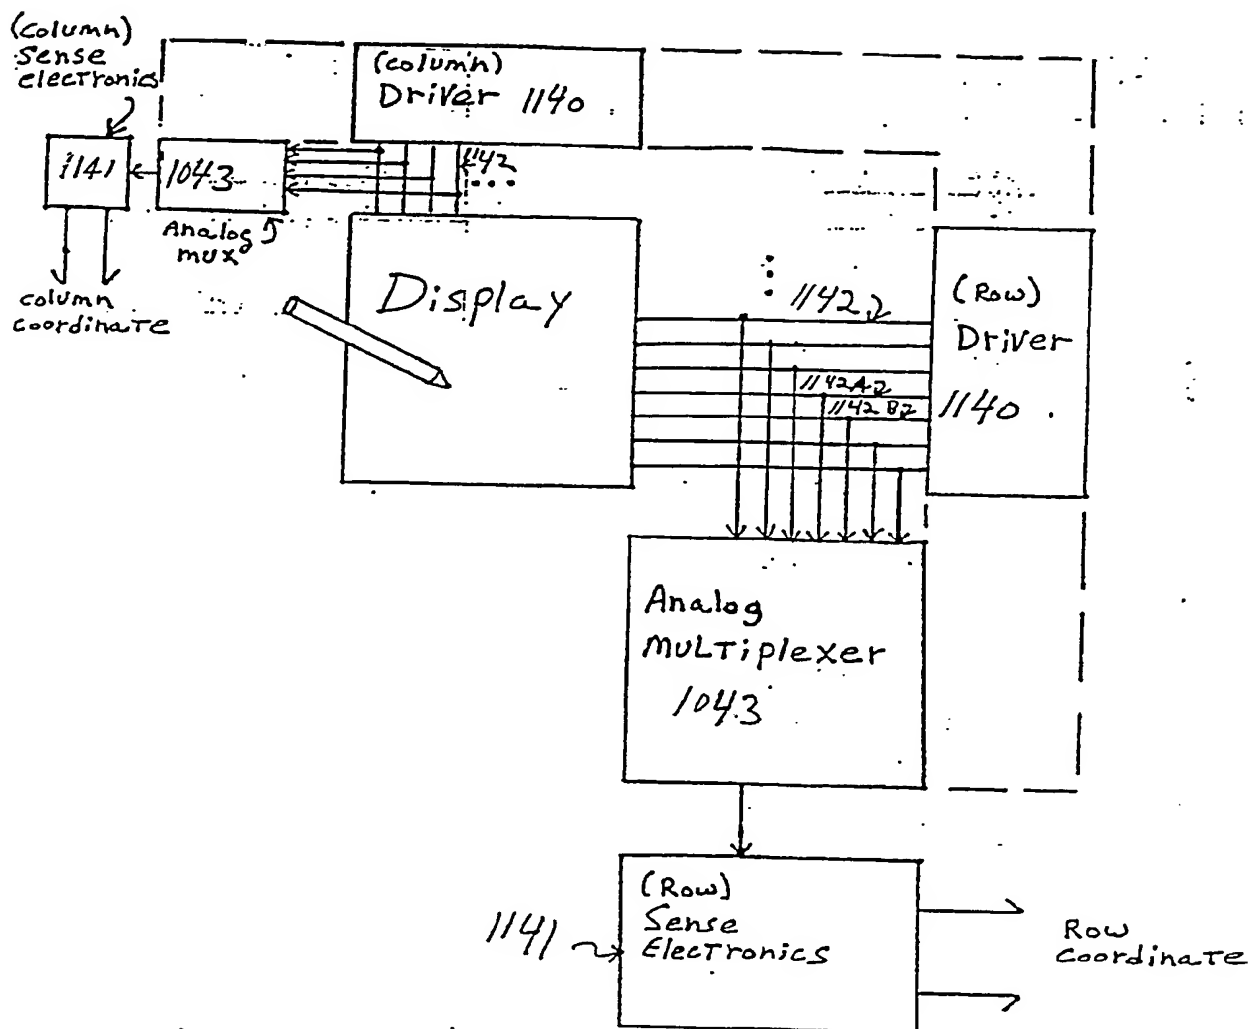 (column)
Sense
electronics
(column)
Driver 1140
1141
1043
1142
Analog
mux
column
coordinate
Display
1142
(Row)
Driver
1140
1142A
1142B
Analog
MULTiplexer
1043
(Row)
Sense
Electronics
1141
Row
coordinate